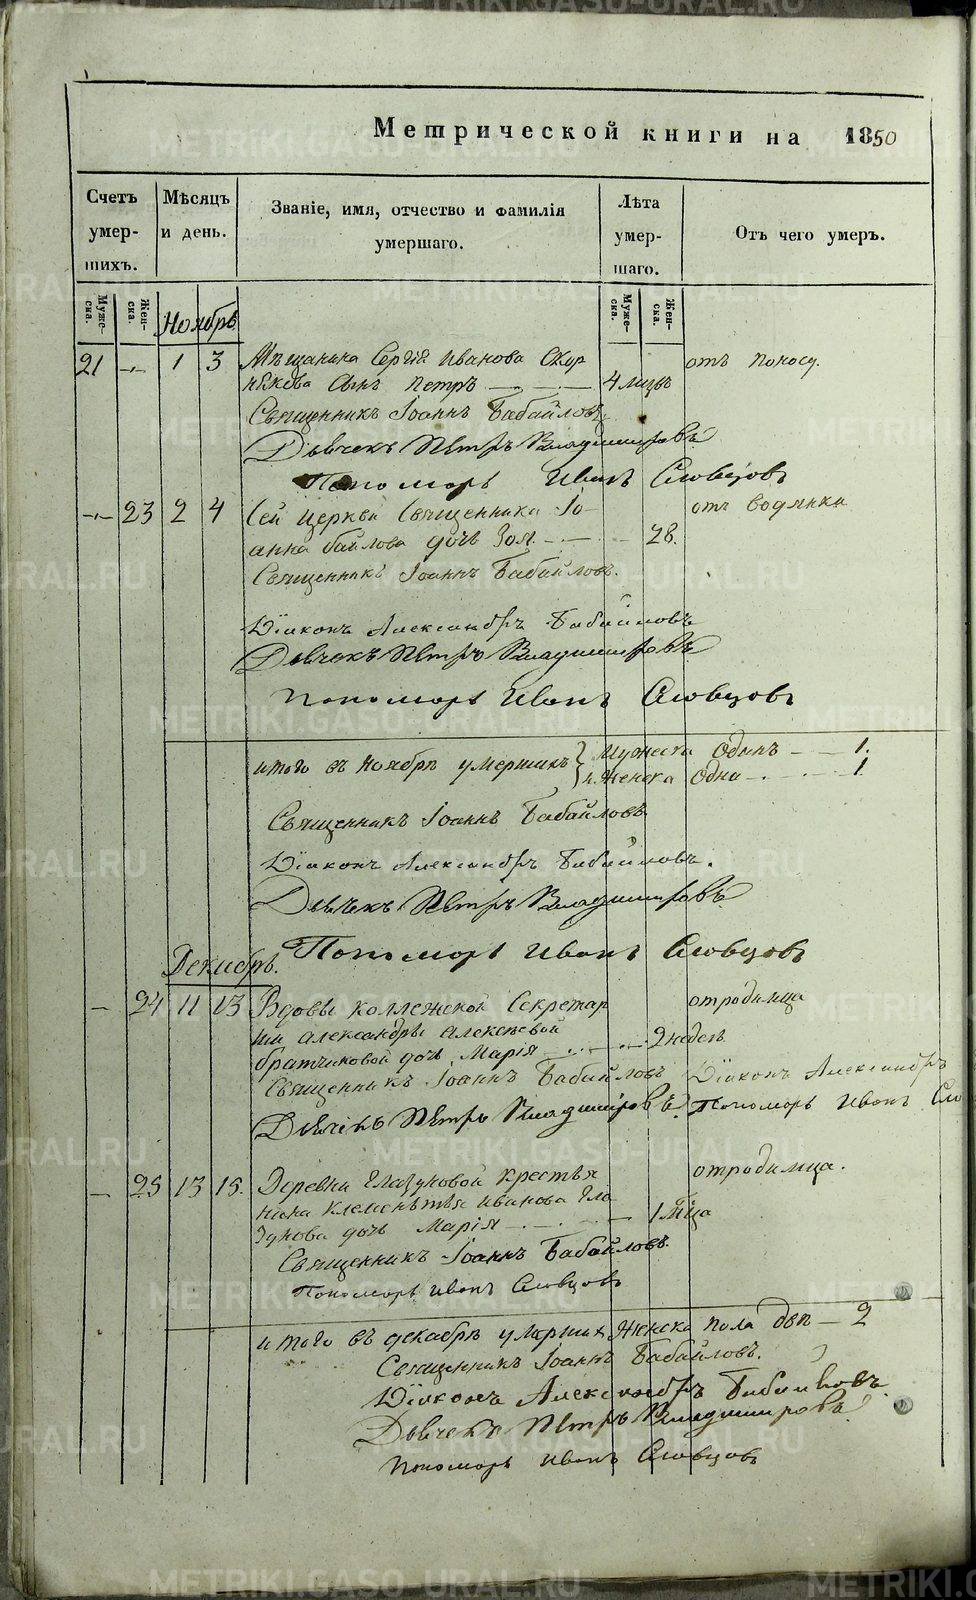 Метрической книги на 1850
Счетъ умер- шихъ.
Мѣсяцъ и день.
Званіе, имя, отчество и фамилія умершаго.
Лѣта умер- шаго.
Отъ чего умеръ.
Муже- ска.
Жен- ска.
Муже- ска.
Жен- ска.
Ноябрь
21 — 1 3 Мѣщанина Сергія Иванова Скор отъ поносу.
някова сынъ Петръ 4 мцзъ
Священникъ Іоаннъ Бабайловъ
Дьячекъ Петръ Владимировъ
Пономарь Иванъ Словцовъ
— 23 2 4 Сей Церкви Священника Іо- отъ водянки
анна байлова дочь Зоя 28.
Священникъ Іоаннъ Бабайловъ.
Діаконъ Александръ Бабайловъ
Дьячекъ Петръ Владимировъ
Пономарь Иванъ Словцовъ
итого въ Ноябрѣ умершихъ Мужеска Одинъ — 1.
Женска Одна — 1
Священникъ Іоаннъ Бабайловъ
Діаконъ Александръ Бабайловъ.
Дьячекъ Петръ Владимировъ
Пономарь Иванъ Словцовъ
Декабрь.
— 24 11 13 Вдовы коллежской Секретар отродимца
ши Александры Алексѣевой
братчиковой дочь Марія 2 недель
Священникъ Іоаннъ Бабайловъ Діаконъ Александръ
Дьячекъ Петръ Владиміровъ. Пономарь Иванъ Сло
— 25 13 15. Деревни Глазуновой крестья отродимца.
нина Клементья Иванова Гла
зунова дочь Марія 1 мца
Священникъ Іоаннъ Бабайловъ.
Пономарь Иванъ Словцовъ
итого въ декабрѣ умерших Женска пола двѣ — 2
Священникъ Іоаннъ Бабайловъ.
Діаконъ Александръ Бабайловъ.
Дьячекъ Петръ Владимировъ
Пономарь Иванъ Словцовъ
METRIKI.GASO-URAL.RU